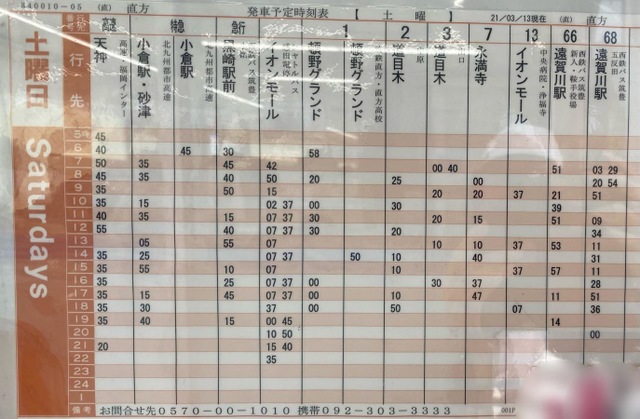 840010-05 (直) 直方 発車予定時刻表 【 土 曜 】 21/03/13現在 (直) 直方
土曜日 Saturdays
行先
高速 特急 急行 1 2 3 7 13 66 68
天神 高速・福岡インター
小倉駅・砂津 北九州都市高速
小倉駅 北九州都市高速
黒崎駅前
イオンモール
植野グランド
植野グランド 直方高校
道目木
道目木
永満寺
イオンモール 中央病院・浄福寺
遠賀川駅 西鉄バス筑豊 鞍手役場
遠賀川駅 西鉄バス筑豊
5 45
6 40 45 30 58
7 50 35 45 42 00 40 51 03 29
8 45 35 40 50 20 25 00 20 54
9 35 50 15 20 20 37 21 51
10 35 15 02 37 00 30 39
11 40 35 15 07 37 30 20 15 51 09
12 55 40 07 37 30 20 34
13 05 55 07 10 10 37 53 11
14 35 25 07 37 50 10 40 31
15 35 55 10 07 10 37 57 11
16 35 25 07 37 00 30 37 28
17 35 15 45 07 37 00 10 47 11 51
18 35 30 37 00 50 07 36
19 35 40 15 00 45 14
20 10 50 00
21 20 15 40
22 35
23
24
1
備考 お問合せ先0570-00-1010 携帯092-303-3333 001P